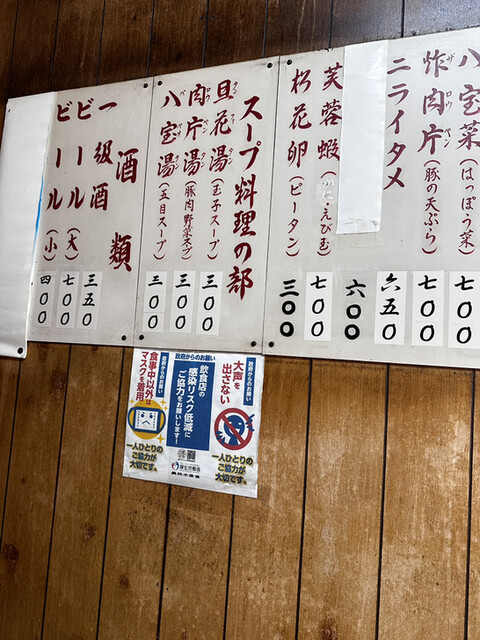 八宝菜(はっぽう菜)
七〇〇
炸肉片(豚の天ぷら)
ザロウペン
七〇〇
ニライタメ
六五〇
六〇〇
芙蓉蝦(えび玉)
七〇〇
松花卵(ピータン)
三〇〇
スープ料理の部
旦花湯(玉子スープ)
三〇〇
肉片湯(豚肉野菜スープ)
三〇〇
八宝湯(五目スープ)
三〇〇
酒類
一級酒
三五〇
ビール(大)
七〇〇
ビール(小)
四〇〇
政府からのお願い
大声を
出さない
一人ひとりの
ご協力が
大切です。
政府からのお願い
飲食店の
感染リスク低減に
ご協力をお願いします!
厚生労働省
農林水産省
政府からのお願い
食事中以外は
マスクを着用
一人ひとりの
ご協力が
大切です。